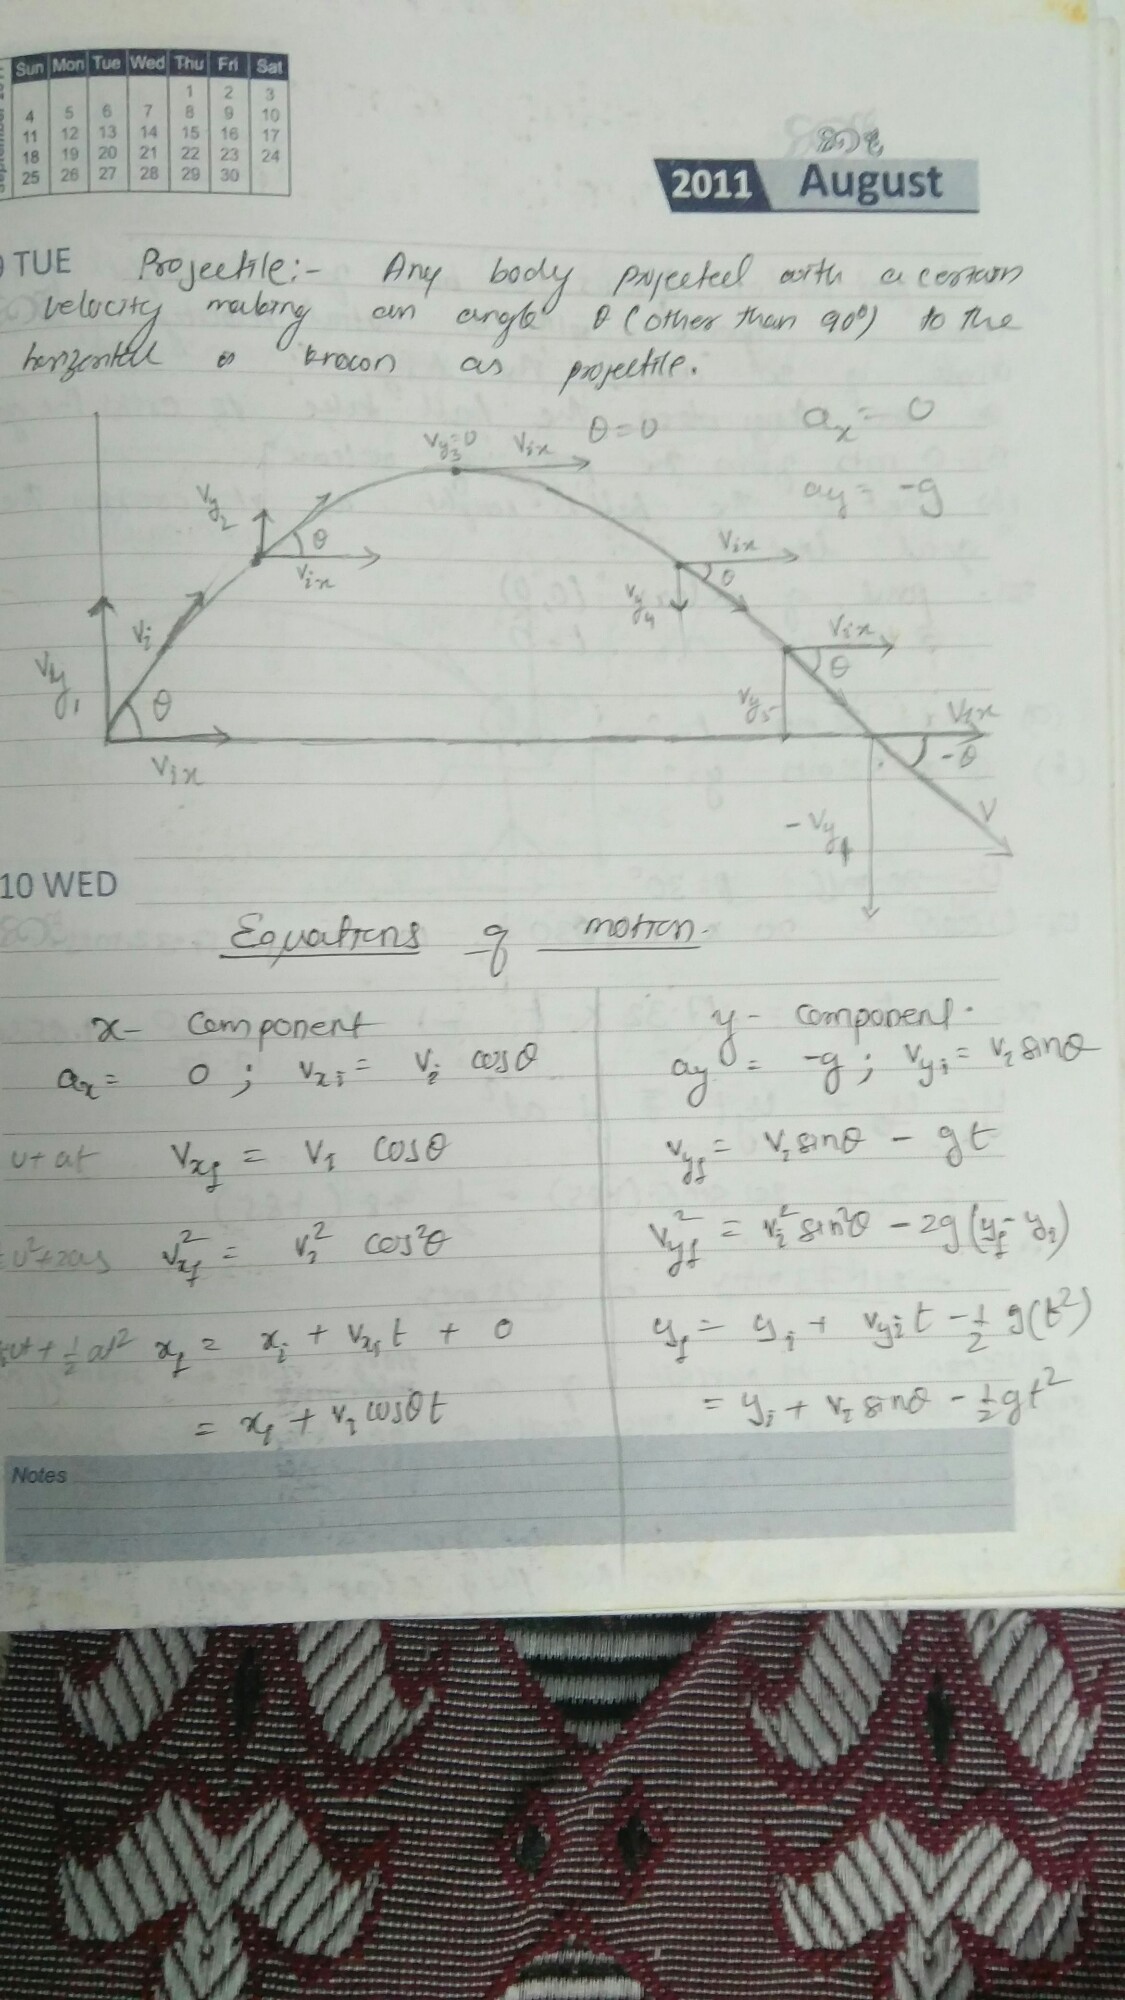 Sun Mon Tue Wed Thu Fri Sat
1 2 3
4 5 6 7 8 9 10
11 12 13 14 15 16 17
18 19 20 21 22 23 24
25 26 27 28 29 30
2011 August
TUE Projectile:- Any body projected with a certain
velocity making an angle θ (other than 90°) to the
horizontal is known as projectile.
aₓ = 0
V_y₃=0 V_ix θ=0
a_y = -g
V_y₂ θ V_ix
V_ix θ V_y₄
V_i V_ix
V_y₁ θ θ V_y₅
V_ix V_ix -θ
V
-V_yf
10 WED
Equations of motion.
x- Component
aₓ = 0 ; V_xi = V_i cosθ
u+at V_xf = V_i cosθ
u²+2as V_xf² = V_i² cos²θ
ut+½at² x_f = x_i + V_xi t + 0
= x_i + V_i cosθt
y- component.
a_y = -g ; V_yi = V_i sinθ
V_yf = V_i sinθ - gt
V_yf² = V_i² sin²θ - 2g(y_f - y_i)
y_f = y_i + V_yi t - ½ g(t²)
= y_i + V_i sinθ - ½gt²
Notes